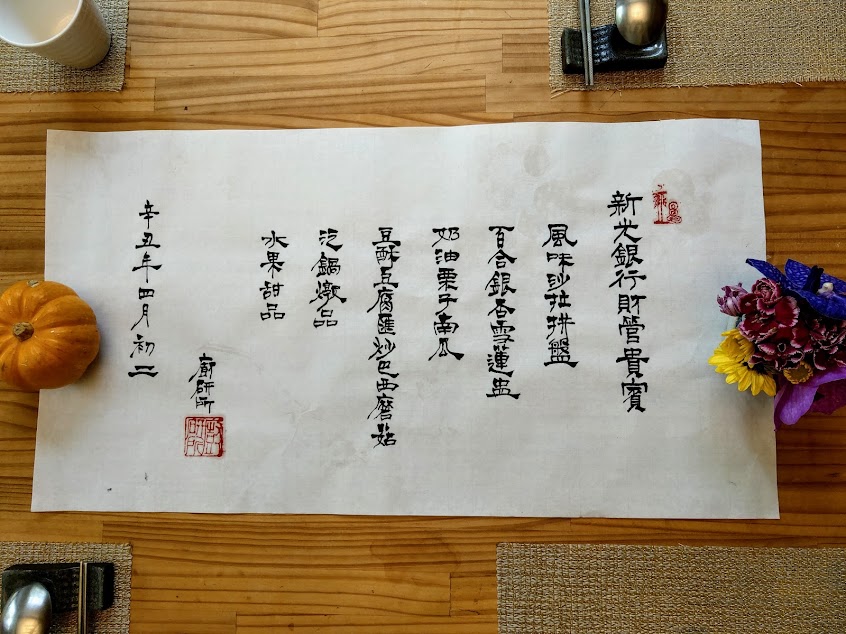 新光銀行財管貴賓
風味沙拉拼盤
百合銀杏雪蓮盅
奶油栗子南瓜
豆酥豆腐匯炒巴西磨菇
汽鍋燉品
水果甜品
廚研所
辛丑年四月初二